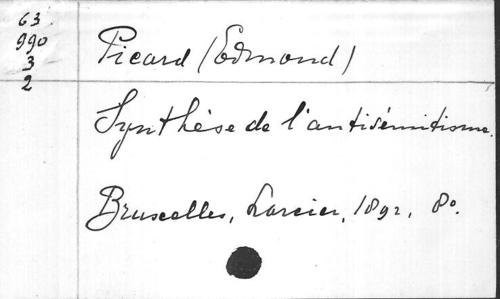 63
990
3
2
Picard (Edmond)
Synthèse de l'antisémitisme.
Bruxelles, Larcier, 1892, 8o.